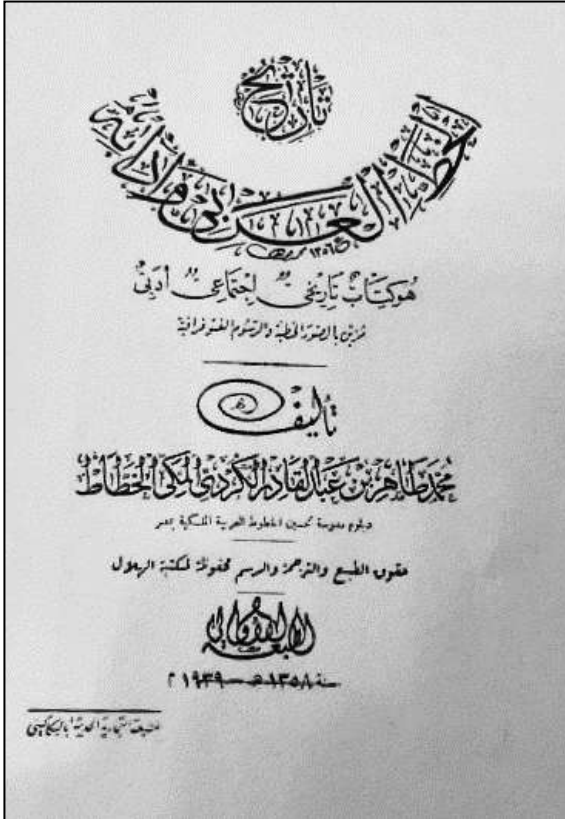 تاريخ
الخط العربي وآدابه
١٣٥٦
هو كتابٌ تاريخيٌ اجتماعيٌ أدبيٌ
مزين بالصور الخطية والرسوم الفتوغرافية
تأليف
محمد طاهر بن عبد القادر الكردي المكي الخطاط
دبلوم مدرسة تحسين الخطوط العربية الملكية بمصر
حقوق الطبع والترجمة والرسم محفوظة لمكتبة الهلال
الطبعة الأولى
سنة ١٣٥٨ هـ - ١٩٣٩ م
المطبعة التجارية الحديثة بالسكاكيني